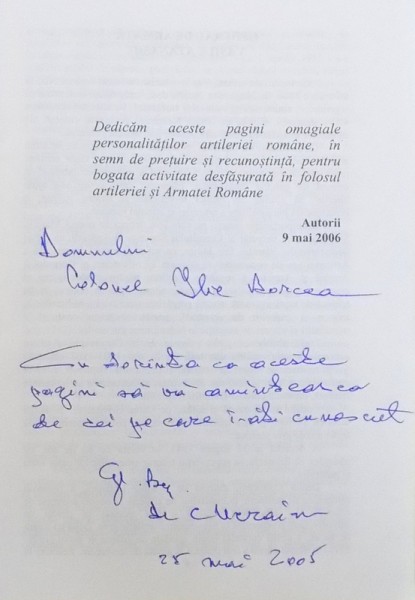 Dedicăm aceste pagini omagiale
personalităților artileriei române, în
semn de prețuire și recunoștință, pentru
bogata activitate desfășurată în folosul
artileriei și Armatei Române
Autorii
9 mai 2006
Domnului
Colonel Ilie Dorcea
Cu dorința ca aceste
pagini să vă amintească
de cei pe care i-ați cunoscut
Gl. Bg.
25 mai 2005